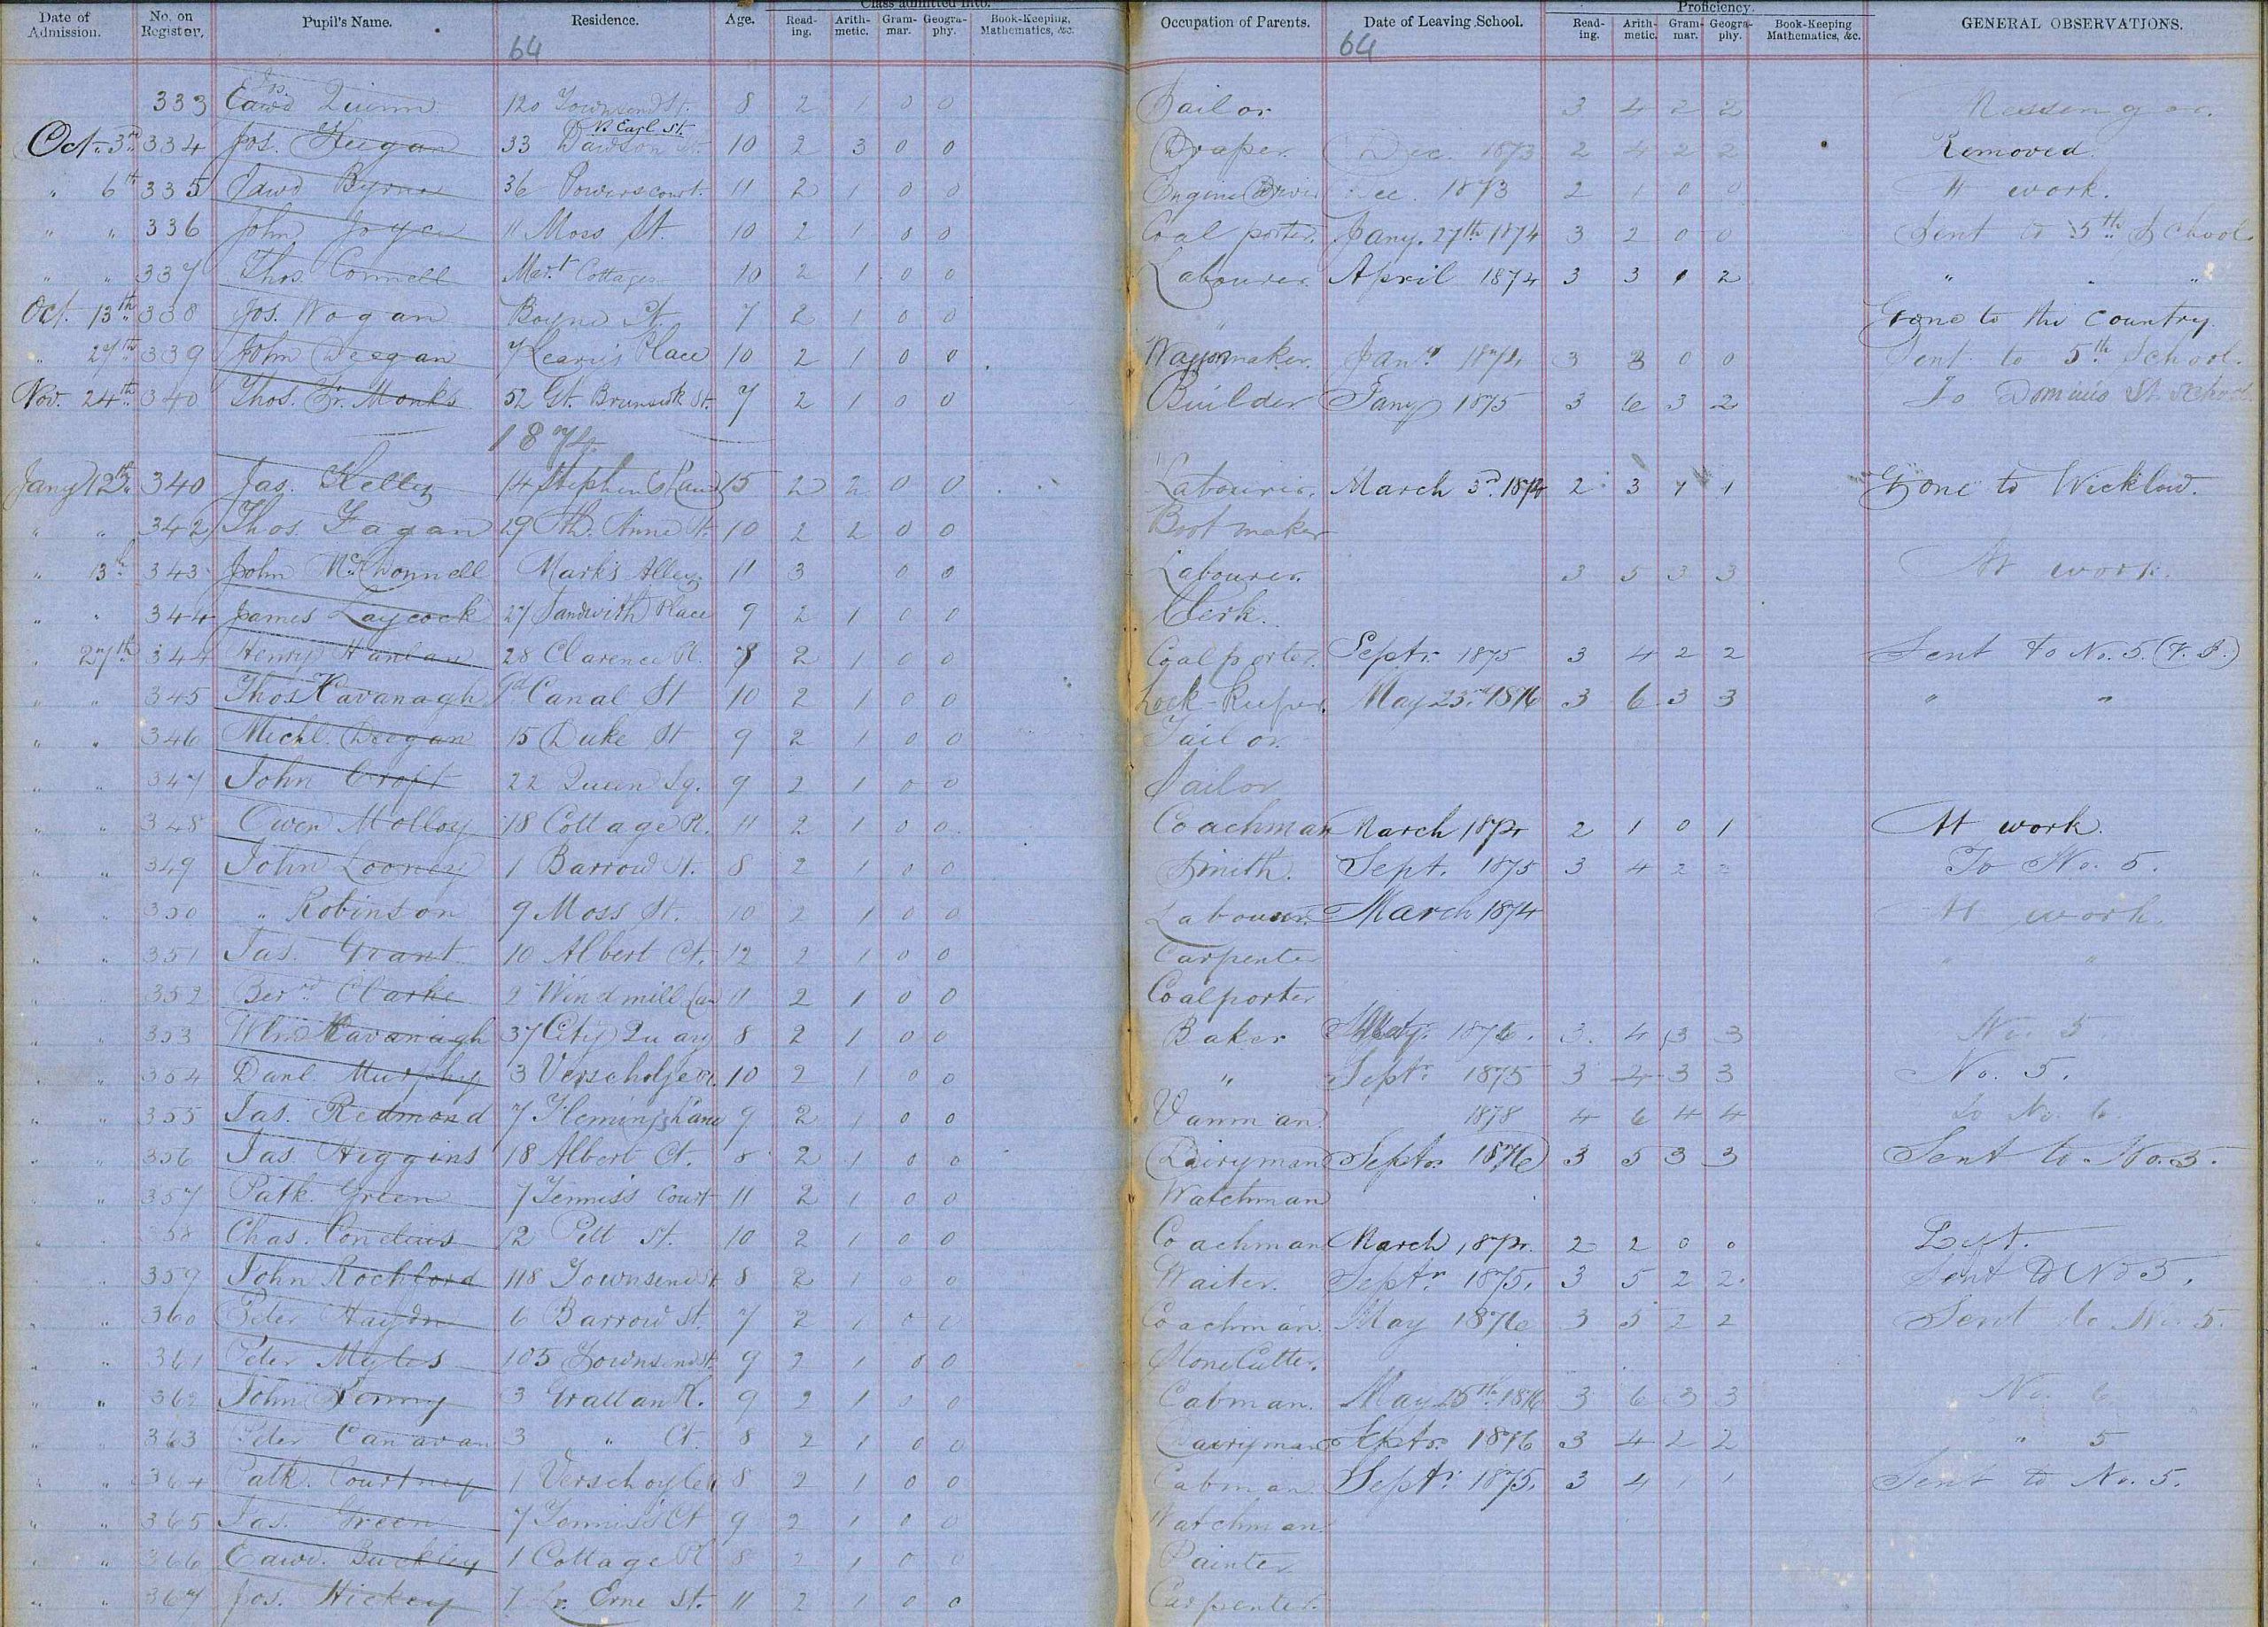 Class admitted into. Proficiency.
Date of Admission. No. on Register. Pupil's Name. Residence. Age. Reading. Arithmetic. Grammar. Geography. Book-Keeping, Mathematics, &c. Occupation of Parents. Date of Leaving School. Reading. Arithmetic. Grammar. Geography. Book-Keeping Mathematics, &c. GENERAL OBSERVATIONS.
64 64
333 Edwd Quinn 120 Townsend St. 8 2 1 0 0 Sailor 3 4 2 2 Messenger.
Oct. 3rd 334 Jos. Keegan 33 Dawson St. N Earl St. 10 2 3 0 0 Draper. Dec. 1873 2 4 2 2 Removed.
" 6th 335 Edwd Byrne 36 Powerscourt. 11 2 1 0 0 Engine Driver Dec. 1873 2 1 0 0 At work.
" " 336 John Joyce 11 Moss St. 10 2 1 0 0 Coal porter. Jany. 27th 1874 3 2 0 0 Sent to 5th School.
" " 337 Thos. Connell Mart Cottages 10 2 1 0 0 Labourer. April 1874 3 3 1 2 " " "
Oct. 13th 338 Jos. Wogan Boyne St. 7 2 1 0 0 " Gone to the country.
" 27th 339 John Deegan 7 Leary's Place 10 2 1 0 0 Waggonmaker. Jany 1874 3 3 0 0 Sent to 5th School.
Nov. 24th 340 Thos. Fr. Monks 52 Gt. Brunswick St. 7 2 1 0 0 Builder Jany 1875 3 6 3 2 To Dominic St School.
1874
Jany 12th 340 Jas. Kelly 14 Stephen's Lane 15 2 2 0 0 Labourer. March 3rd 1874 2 3 1 1 Gone to Wicklow.
" " 342 Thos. Fagan 29 Sth. Anne St. 10 2 2 0 0 Bootmaker
" 13th 343 John McDonnell Mark's Alley 11 3 0 0 Labourer. 3 5 3 3 At work.
" " 344 James Laycock 27 Sandwith Place 9 2 1 0 0 Clerk.
" 27th 344 Henry Hanlan 28 Clarence Pl. 8 2 1 0 0 Coalporter. Septr. 1875 3 4 2 2 Sent to No. 5.
" " 345 Thos Kavanagh Gd Canal St 10 2 1 0 0 Lock-Keeper. May 23rd 1876 3 6 3 3 " "
" " 346 Michl. Deegan 15 Duke St 9 2 1 0 0 Tailor.
" " 347 John Croft 22 Queen Sq. 9 2 1 0 0 Sailor
" " 348 Owen Molloy 18 Cottage Pl. 11 2 1 0 0 Coachman March 1874 2 1 0 1 At work.
" " 349 John Looney 1 Barrow St. 8 2 1 0 0 Smith. Sept. 1875 3 4 2 2 To No. 5.
" " 350 " Robinson 9 Moss St. 10 2 1 0 0 Labourer. March 1874 At work.
" " 351 Jas. Grant 10 Albert Ct. 12 2 1 0 0 Carpenter " "
" " 352 Berrd Clarke 2 Windmill Lan 11 2 1 0 0 Coalporter
" " 353 Wm Kavanagh 37 City Quay 8 2 1 0 0 Baker 1876. 3 4 3 3 No. 5
" " 354 Danl. Murphy 3 Verschoyle Ct. 10 2 1 0 0 " Septr. 1875 3 4 3 3 No. 5.
" " 355 Jas. Redmond 7 Fleming's Lane 9 2 1 0 0 Vanman. 1878 4 6 4 4 To No. 6.
" " 356 Jas Higgins 18 Albert Ct. 8 2 1 0 0 Dairyman Septr. 1876 3 5 3 3 Sent to No. 5.
" " 357 Patk. Green 7 Tennis's Court 11 2 1 0 0 Watchman
" " 358 Chas. Conelius 12 Pitt St. 10 2 1 0 0 Coachman March 1874. 2 2 0 0 Left.
" " 359 John Rochford 118 Townsend St. 8 2 1 0 0 Waiter. Septr. 1875. 3 5 2 2. Sent to No 5.
" " 360 Peter Haydn 6 Barrow St. 7 2 1 0 0 Coachman. May 1876 3 5 2 2 Sent to No. 5.
" " 361 Peter Myles 105 Townsend St. 9 2 1 0 0 StoneCutter.
" " 362 John Kenny 3 Grattan Pl. 9 2 1 0 0 Cabman. May 25th 1876 3 6 3 3 No. 6
" " 363 Peter Canavan 3 " Ct. 8 2 1 0 0 Dairyman Septr. 1876 3 4 2 2 " 5
" " 364 Patk. Courtney 1 Verschoyle Ct 8 2 1 0 0 Cabman Septr. 1875. 3 4 1 1 Sent to No. 5.
" " 365 Jas. Green 7 Tennis's Ct 9 2 1 0 0 Watchman
" " 366 Edwd. Buckley 1 Cottage Pl 8 2 1 0 0 Painter
" " 367 Jos. Hickey 7 Lr. Erne St. 11 2 1 0 0 Carpenter.